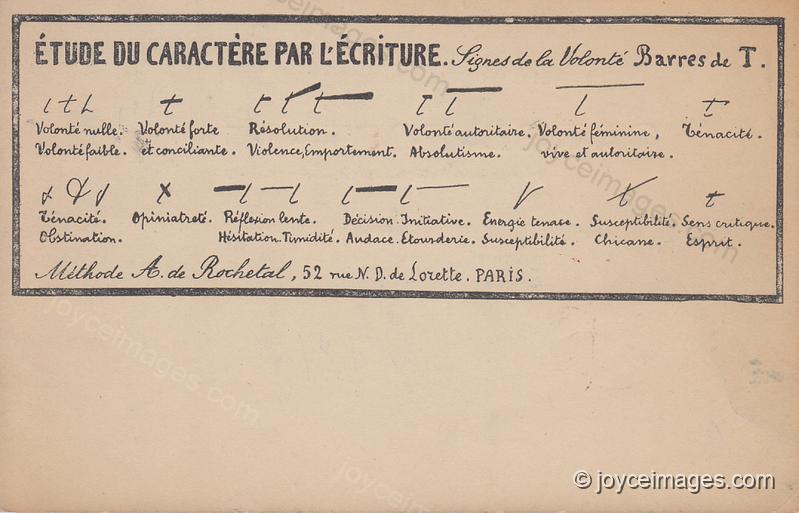 ÉTUDE DU CARACTÈRE PAR L'ÉCRITURE. Signes de la Volonté Barres de T.
Volonté nulle. Volonté forte Résolution. Volonté autoritaire. Volonté féminine, Ténacité.
Volonté faible. et conciliante. Violence, Emportement. Absolutisme. vive et autoritaire.
Ténacité. Opiniatreté. Réflexion lente. Décision. Initiative. Energie tenace. Susceptibilité. Sens critique.
Obstination. Hésitation. Timidité. Audace. Etourderie. Susceptibilité. Chicane. Esprit.
Méthode A. de Rochetal, 52 rue N. D. de Lorette. PARIS.
© joyceimages.com